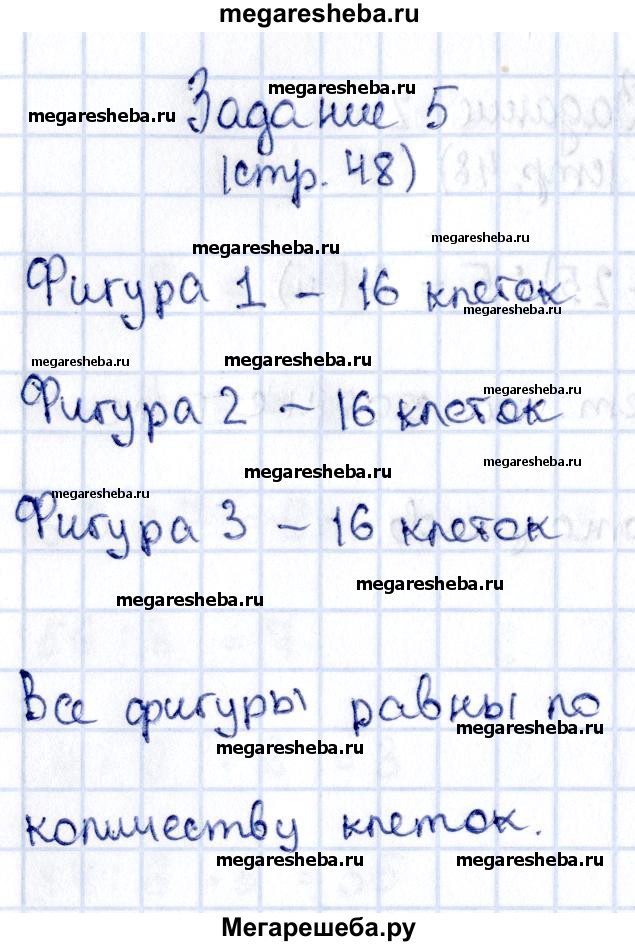 megaresheba.ru
megaresheba.ru
megaresheba.ru
Задание 5
(стр. 48)
megaresheba.ru
megaresheba.ru
Фигура 1 – 16 клеток
megaresheba.ru
megaresheba.ru
megaresheba.ru
megaresheba.ru
Фигура 2 – 16 клеток
megaresheba.ru
megaresheba.ru
megaresheba.ru
Фигура 3 – 16 клеток
megaresheba.ru
megaresheba.ru
Все фигуры равны по
megaresheba.ru
megaresheba.ru
количеству клеток.
megaresheba.ru
megaresheba.ru
Мегарешеба.ру